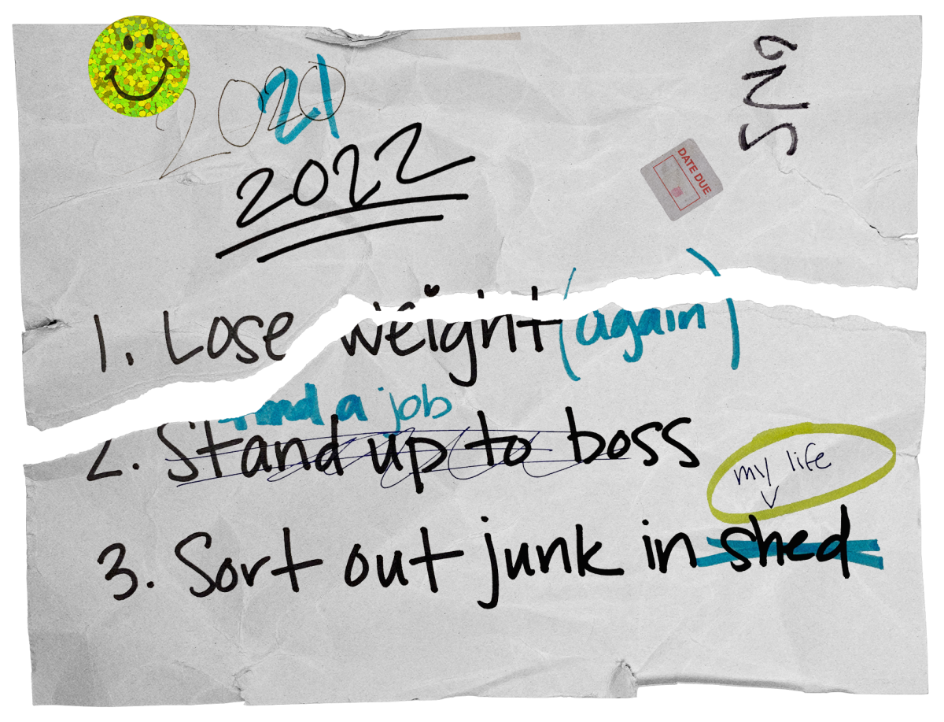 2021
2022
DATE DUE
1. Lose weight (again)
find a job
2. Stand up to boss
my life
3. Sort out junk in shed